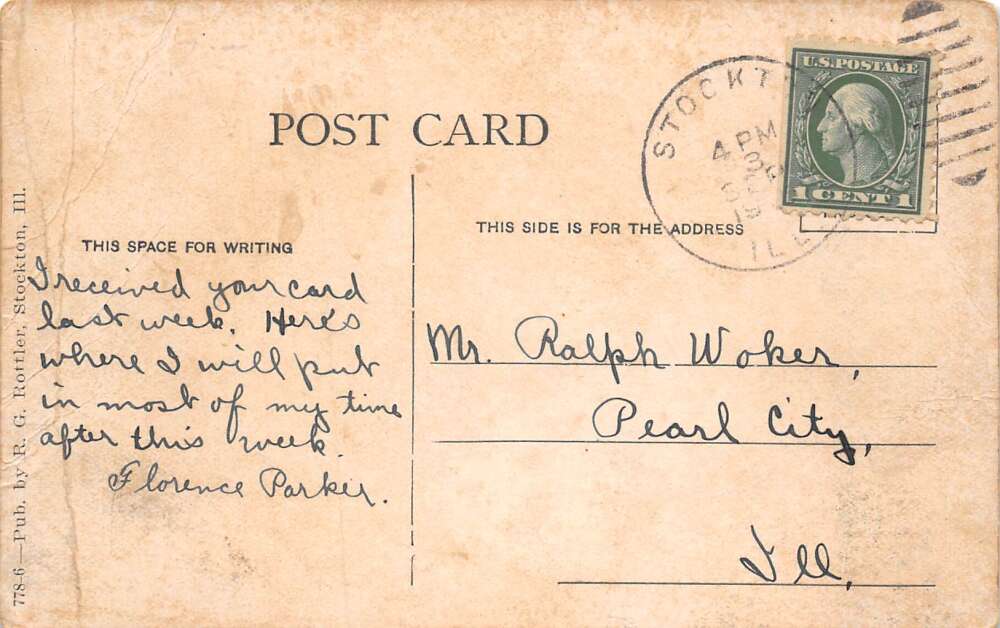 POST CARD
STOCKT
4 PM
3
SEP
19
ILL
U.S. POSTAGE
1 CENT 1
THIS SPACE FOR WRITING
THIS SIDE IS FOR THE ADDRESS
I received your card
last week. Here's
where I will put
in most of my time
after this week.
Florence Parker.
Mr. Ralph Woker,
Pearl City,
Ill,
778-6—Pub. by R. G. Rottler, Stockton, Ill.